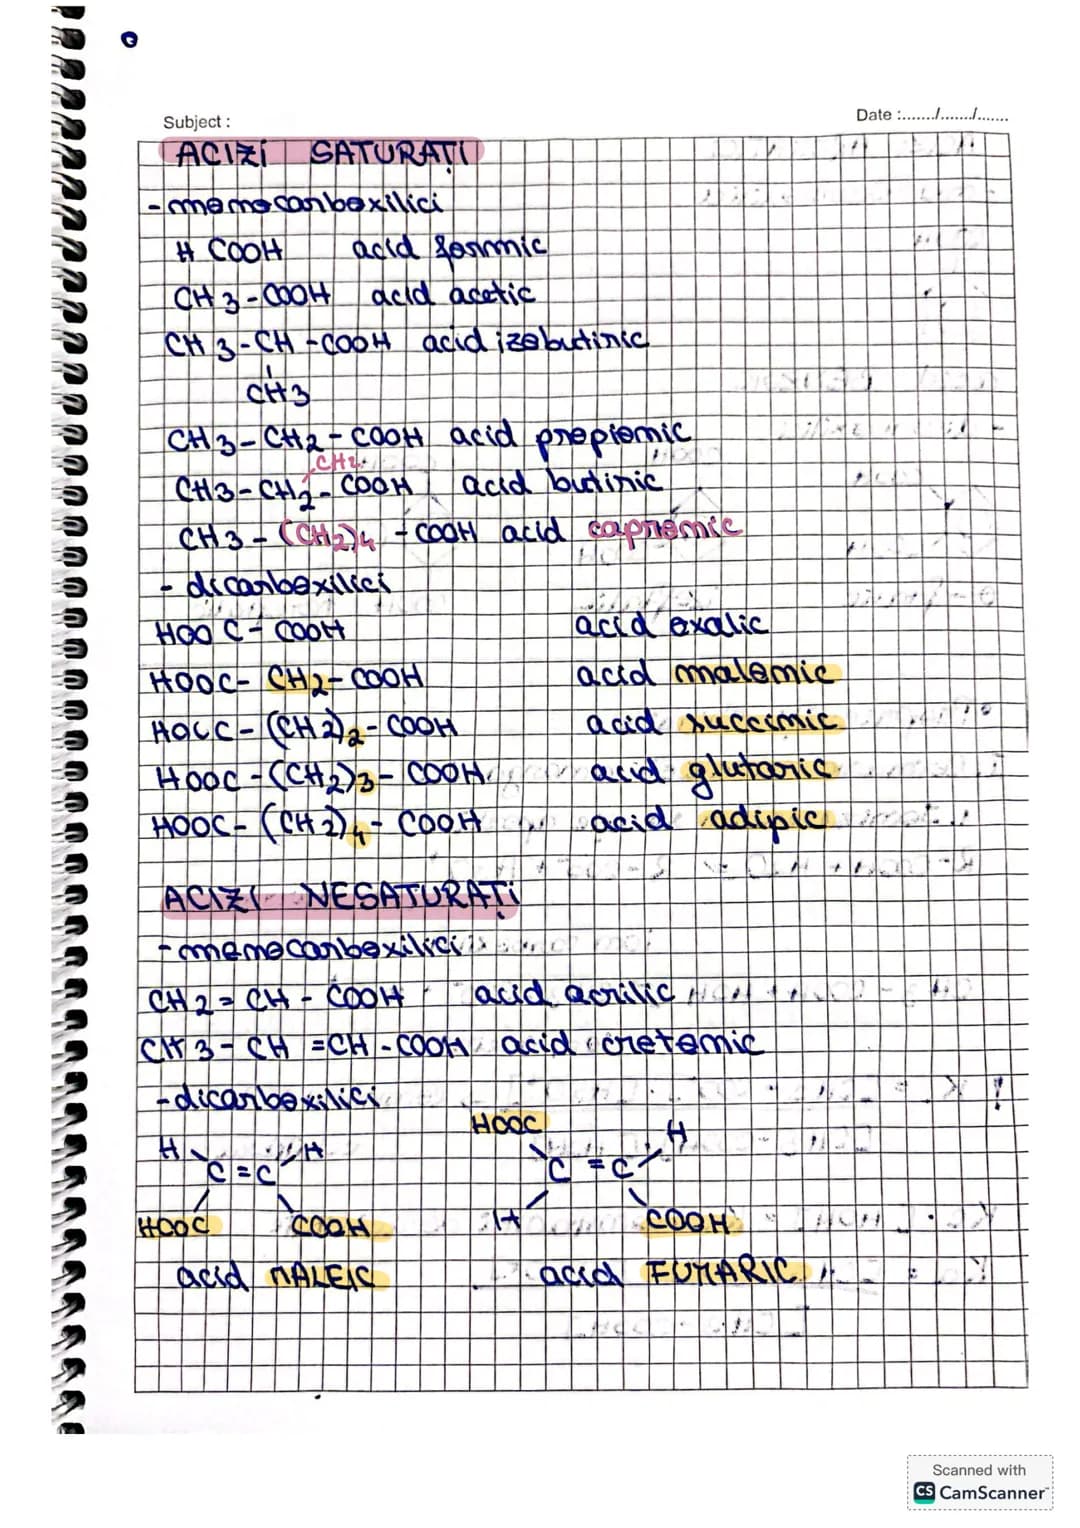 Subject :
Date :....../....../......
ACIZI SATURAȚI
- monocarboxilici
H COOH acid formic
CH3-COOH acid acetic
CH3-CH-COOH acid izobutiric
CH3
CH3-CH2-COOH acid propionic
CH2
CH3-CH2-COOH acid butiric
CH3-(CH2)4-COOH acid capronic
- dicarboxilici
HOOC-COOH acid oxalic
HOOC-CH2-COOH acid malonic
HOCC-(CH2)2-COOH acid succinic
HOOC-(CH2)3-COOH acid glutaric
HOOC-(CH2)4-COOH acid adipic
ACIZI NESATURAȚI
- monocarboxilici
CH2=CH-COOH acid acrilic
CH3-CH=CH-COOH acid crotonic
- dicarboxilici
HOOC
H H H
C=C C=C
HOOC COOH H COOH
acid MALEIC acid FUMARIC
Scanned with
CS CamScanner